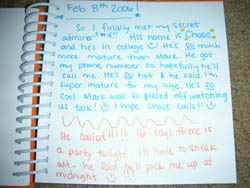 Feb 8th 2006!
So I finally met my secret
admirer His name is Chase
and he's in college He's SO much
more mature than Mark. He got
my phone number so hopefully he'll
call me. He's so hot & he said I'm
super mature for my age. He's so
cool. Mark was so pissed off watching
us talk! I hope Chase calls!!
He called!!!! He says there is
a party tonight. I'll have to sneak
out - he said he'll pick me up at
midnight